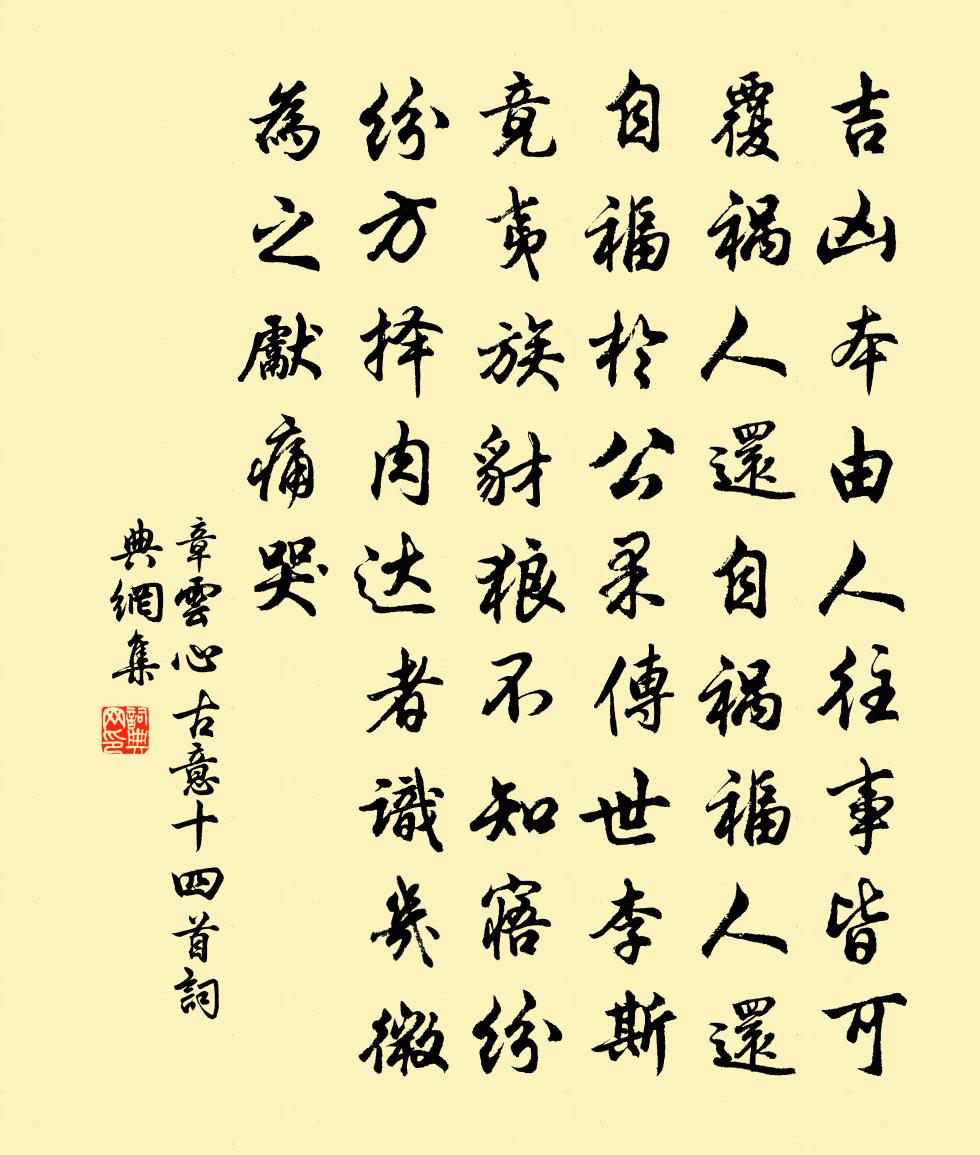 吉凶本由人往事皆可
覆祸人還自祸福人還
自福於公果傳世李斯
竟夷族豺狼不知寤纷
纷方择肉达者識幾微
為之獻痛哭
章雲心古意十四首詞
典網集
詞典网印